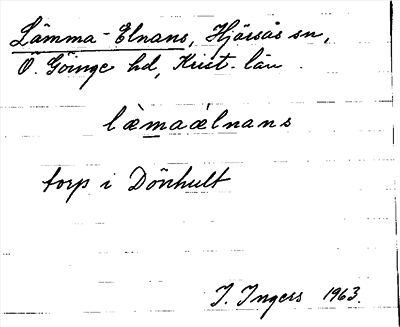 Lämma-Elnans, Hjärsås sn,
Ö. Göinge hd, Krist. län
lὲmaálnans
torp i Dönhult
I. Ingers 1963.